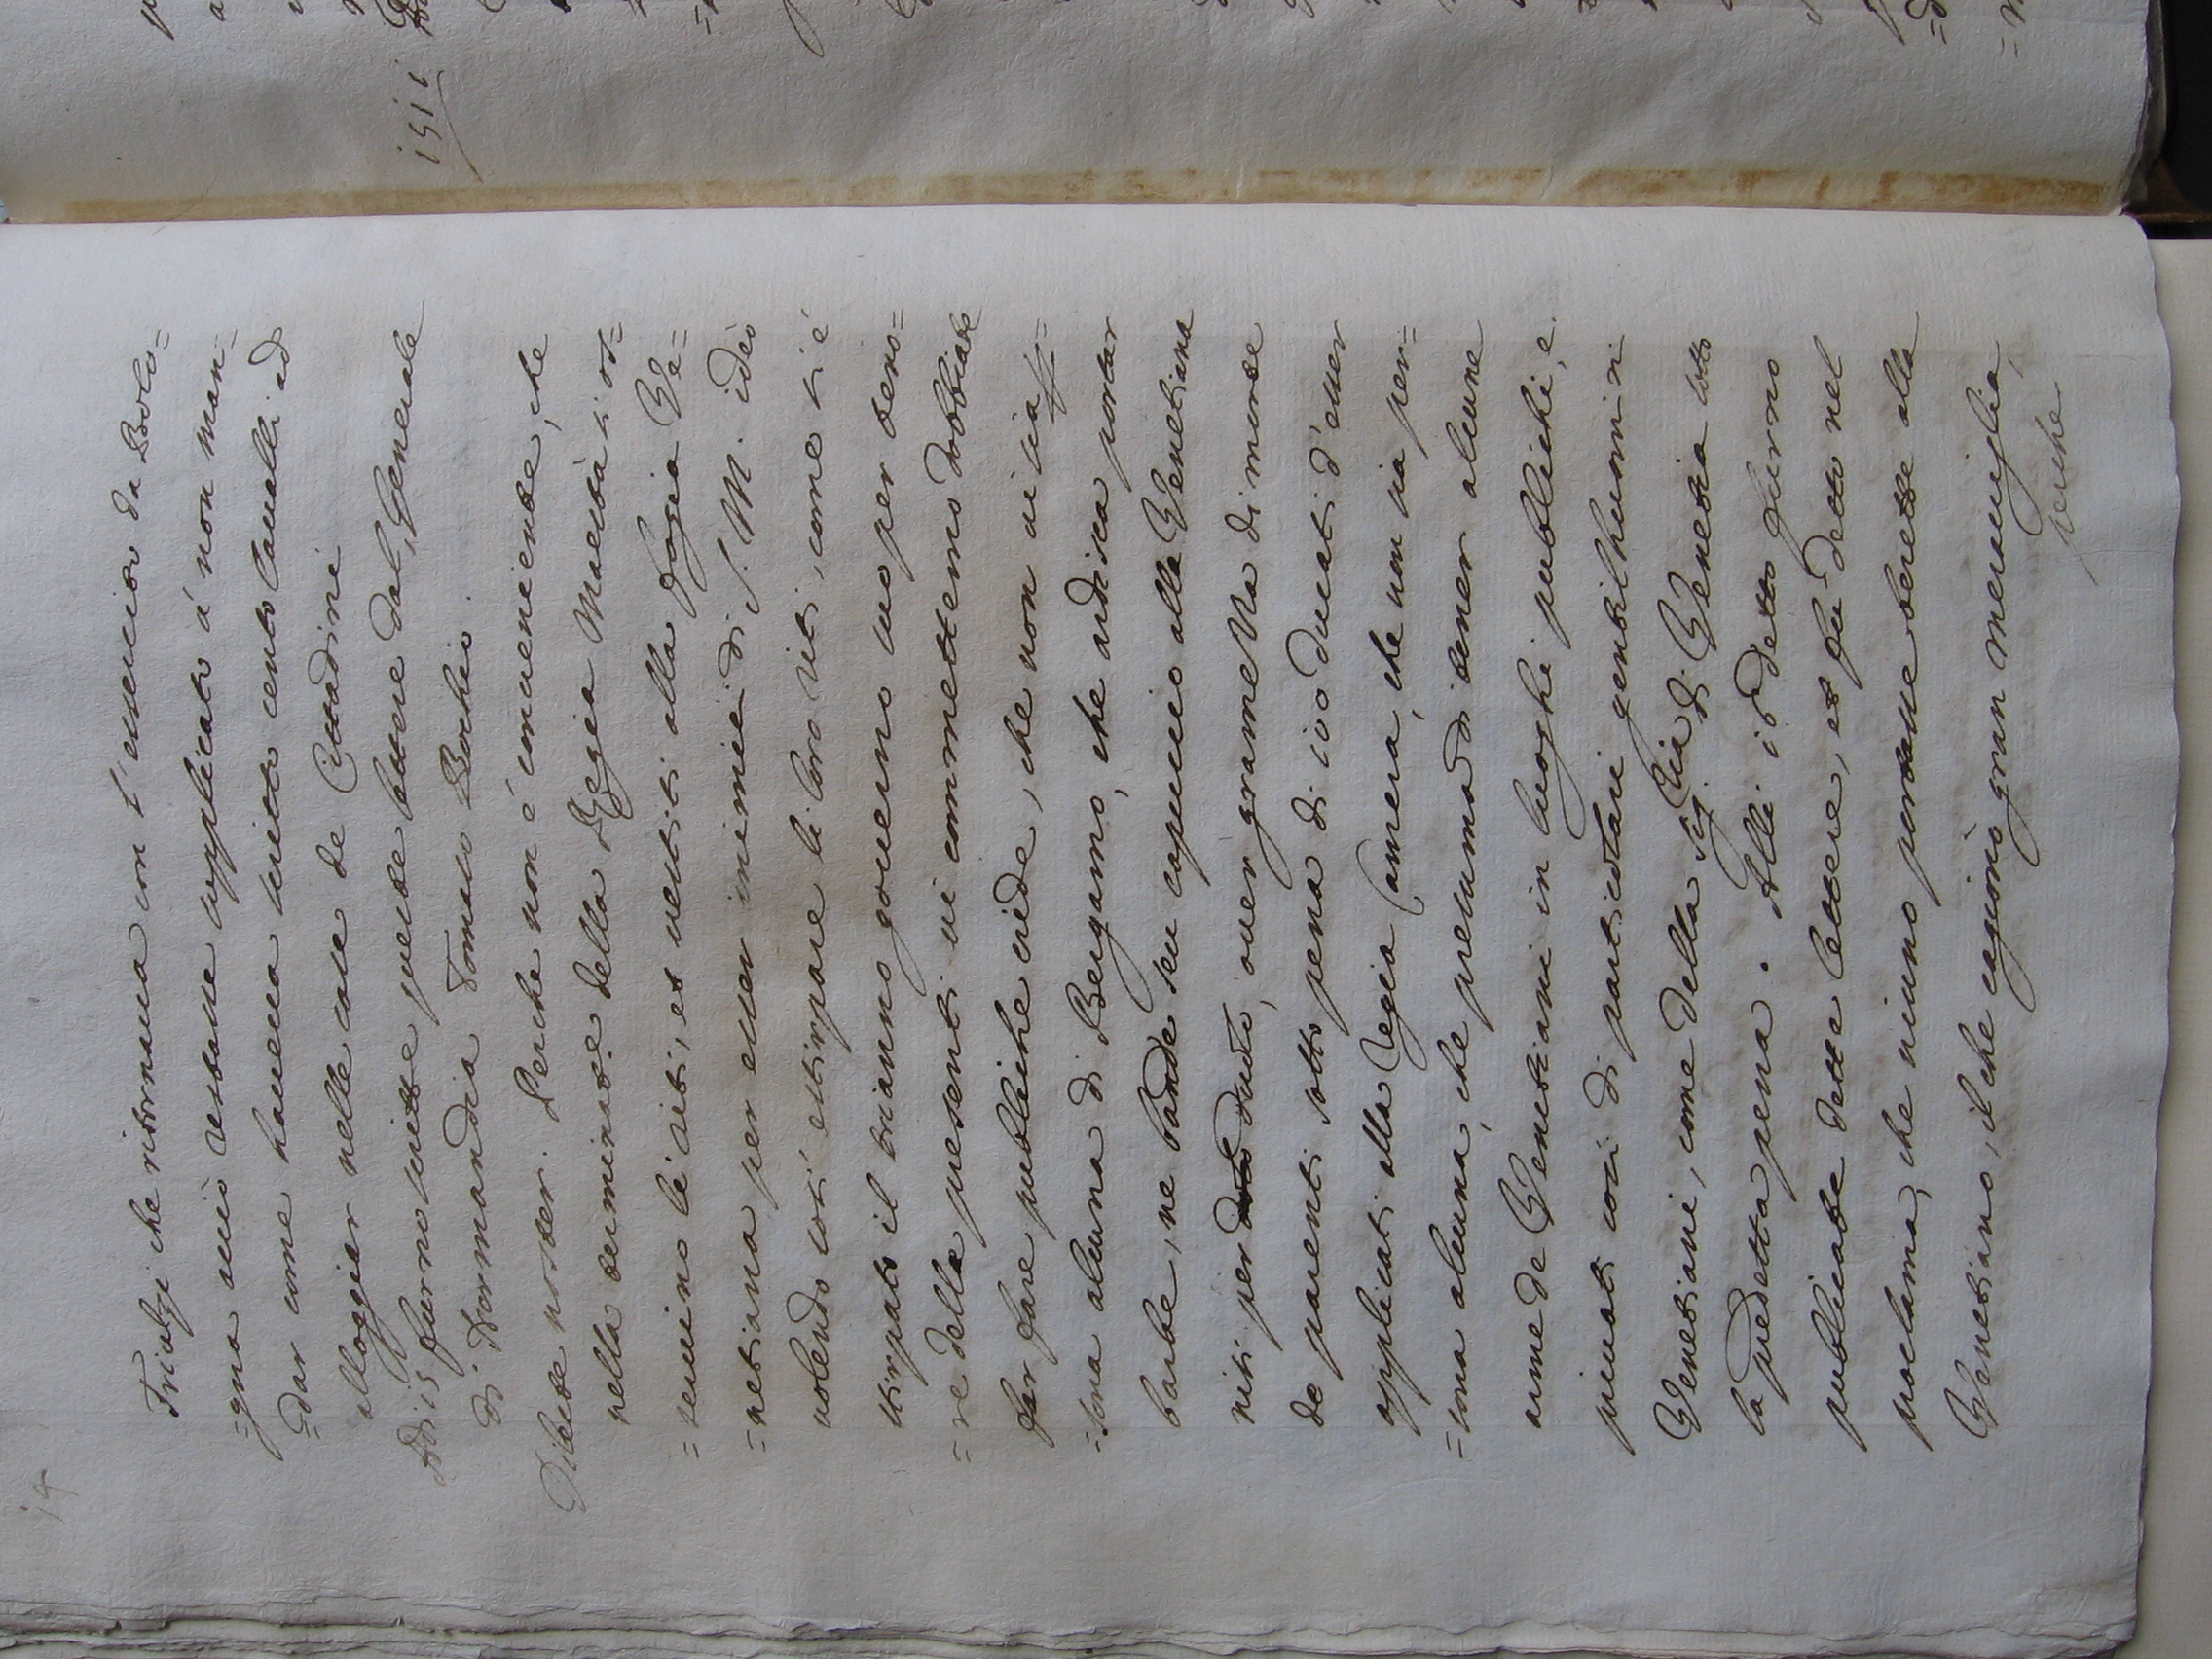 14
Triulzi che ritornaua con l'essercito da Bolo=
=gna acciò restasse supplicato à non man=
=dar come haueua scritto cento Caualli ad
alloggiar nelle case de Cittadini
Adi 15 furno scritte queste lettere dal Generale
di Normandia Tomaso Bochio.
Dilecte noster. Perche non è conueniente, che
nella terminat.e della Regia Maestà si os=
=seruino li riti, et uestiti alla fogia Ve=
=netiana per esser inimici di S. M. ideo
uolendo così estirpare li loro riti, come si è
stirpato il tirannno gouerno suo per teno=
=re delle presenti ui commettemo dobbiate
far fare publiche cride, che non ui sia per=
=sona alcuna di Bergamo, che ardisca portar
barbe, ne bande seu capucio alla Venetiana
nisi per duolo, ouer gramezza di morte
de parenti sotto pena di 100 ducati d'esser
applicati alla Regia Camera, che non sia per=
=sona alcuna, che presuma di tener alcune
arme de Venetiani in luoghi publichi, e
priuati così di particolari gentilhuomini
Venetiani, come della Sig.ria di Venetia sotto
la predetta pena. Alli 18 detto furno
publicate dette lettere, et fu detto nel
proclama, che niuno portasse berette alla
Venetiano, il che cagionò gran merauiglia,
perche
1511